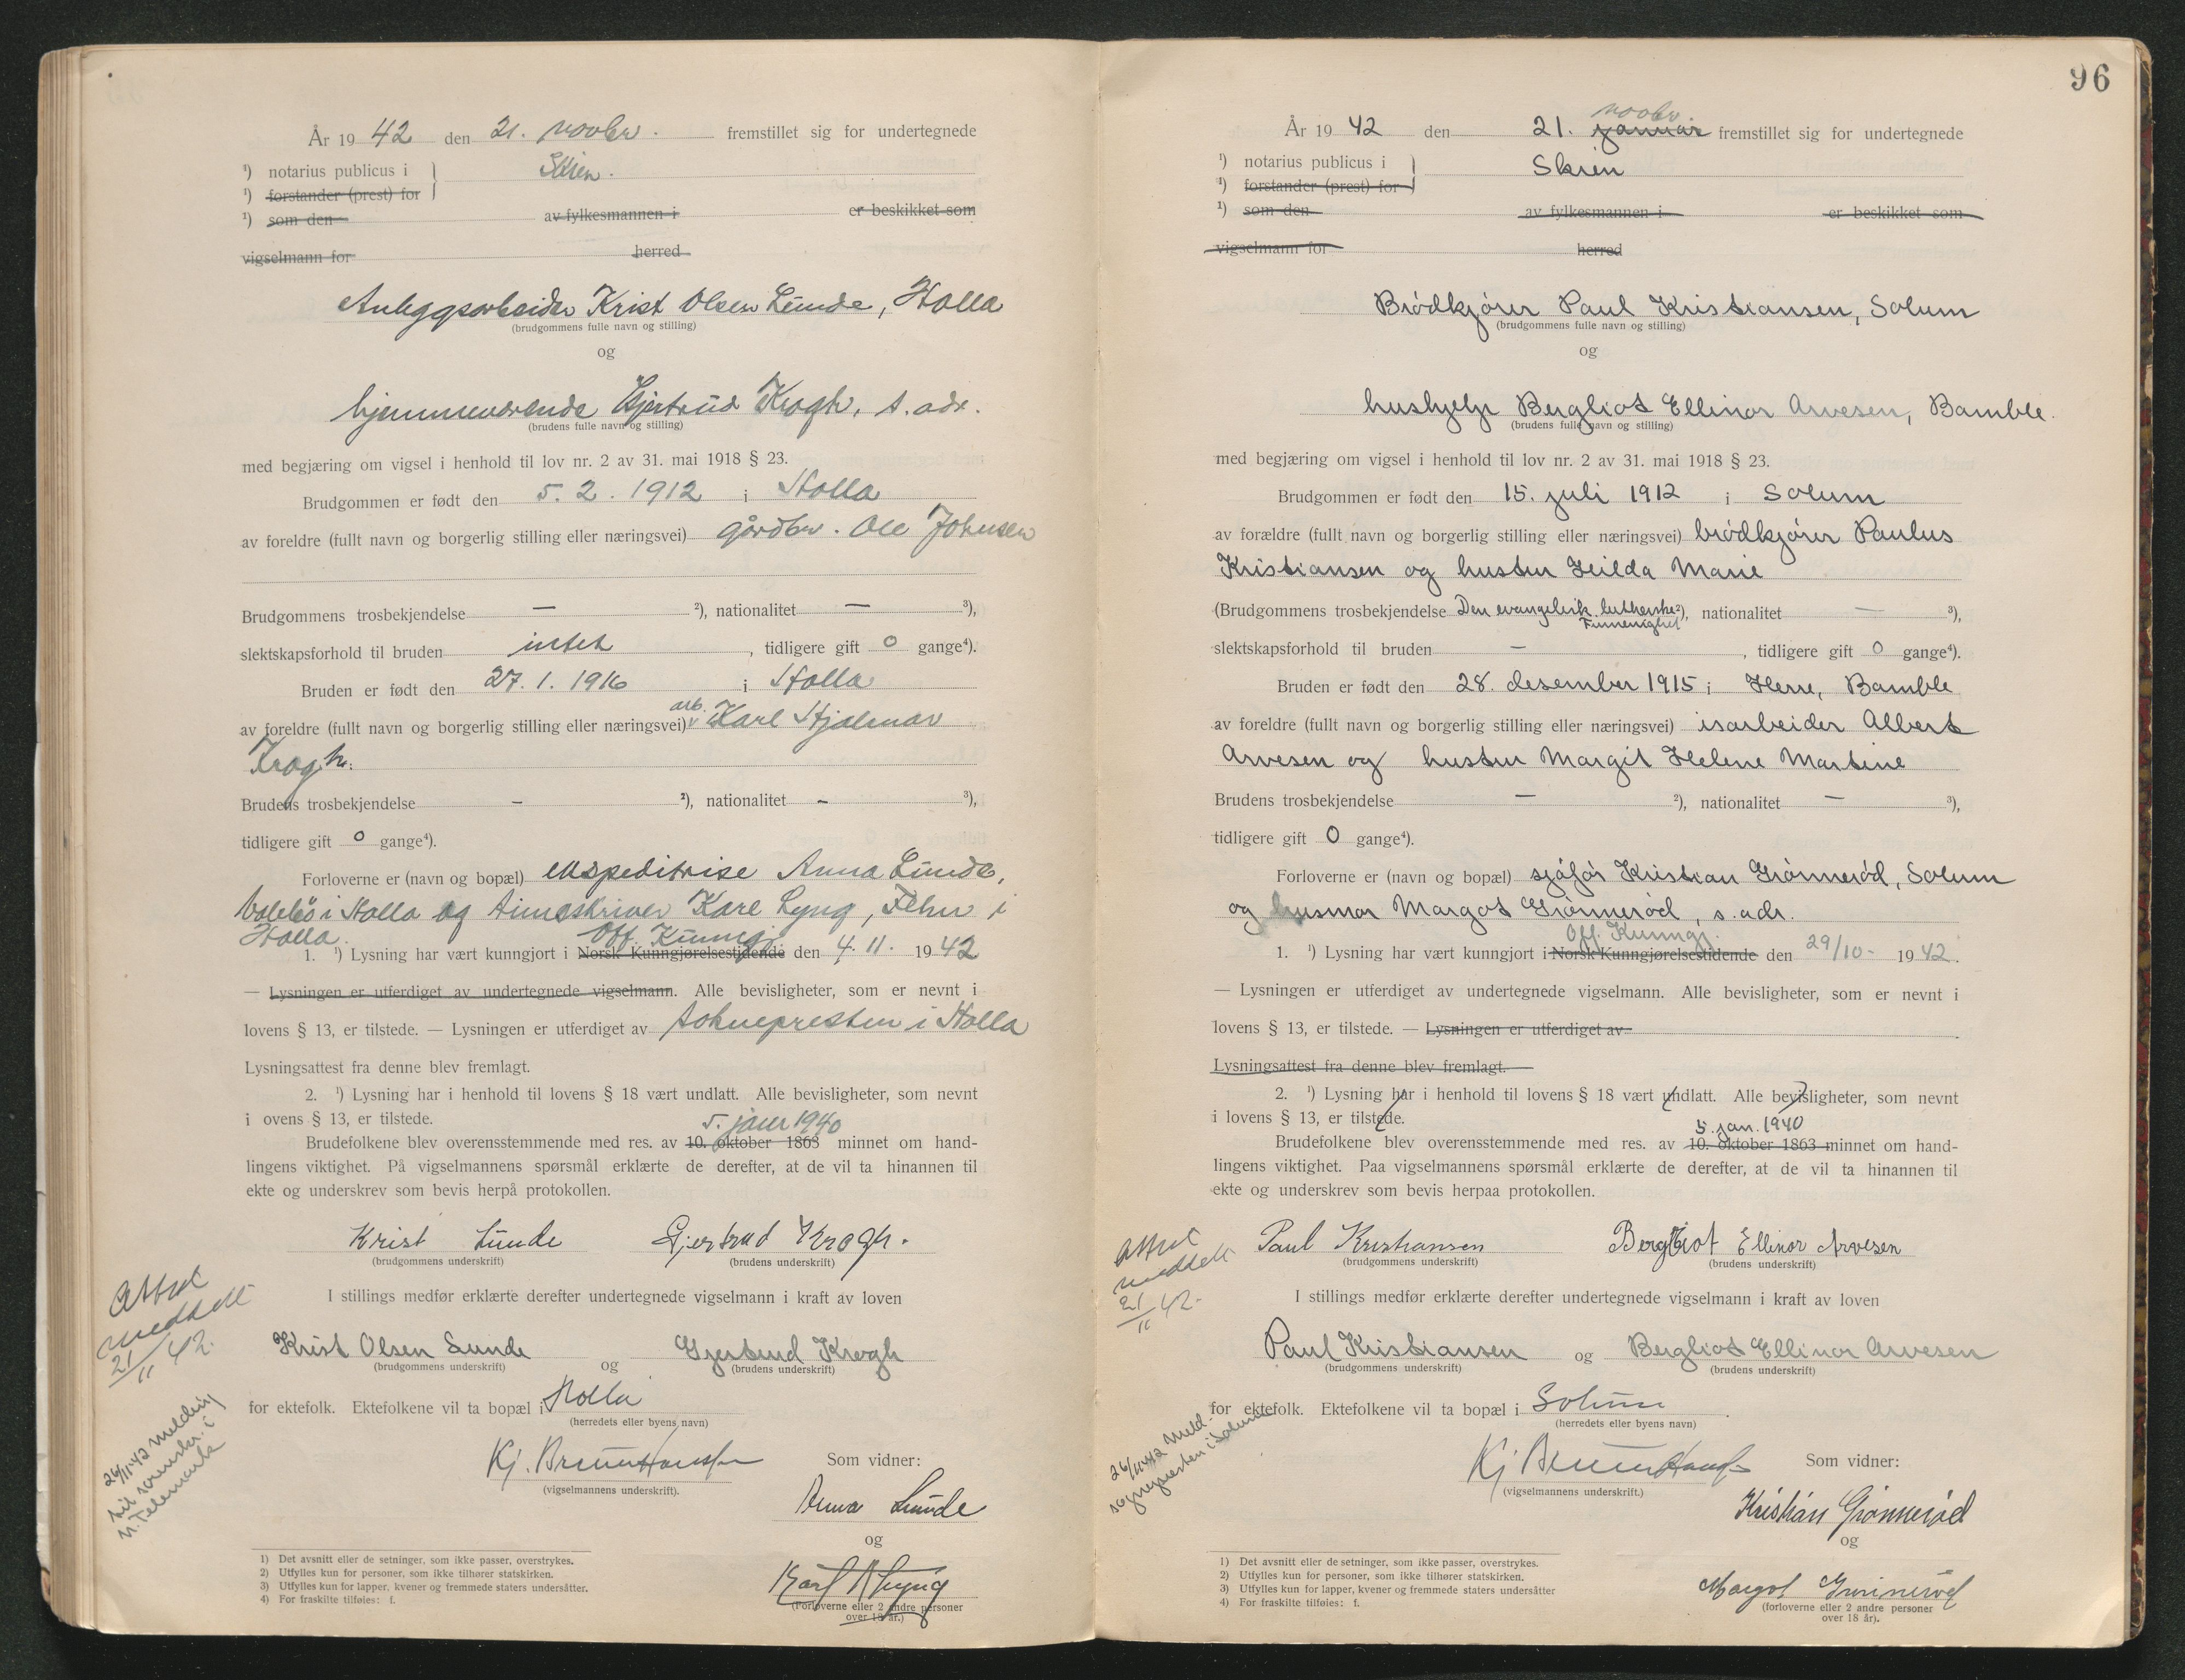 År 19 42 den 21. novbr. fremstillet sig for undertegnede
¹) notarius publicus i Skien.
¹) forstander (prest) for
¹) som den av fylkesmannen i er beskikket som
vigselmann for herred
Anleggsarbeider Krist Olsen Lunde, Holla
(brudgommens fulle navn og stilling)
og
hjemmeværende Gjertrud Krogh, s. adr.
(brudens fulle navn og stilling)
med begjæring om vigsel i henhold til lov nr. 2 av 31. mai 1918 § 23.
Brudgommen er født den 5. 2. 1912 i Holla
av foreldre (fullt navn og borgerlig stilling eller næringsvei) gårdbr. Ole Johnsen
Brudgommens trosbekjendelse — ²), nationalitet — ³),
slektskapsforhold til bruden intet, tidligere gift 0 gange⁴).
Bruden er født den 27. 1. 1916 i Holla
av foreldre (fullt navn og borgerlig stilling eller næringsvei) arb. Karl Hjalmar
Krogh.
Brudens trosbekjendelse - ²), nationalitet - ³),
tidligere gift 0 gange⁴).
Forloverne er (navn og bopæl) ekspeditrise Anna Lunde,
i Holla og timeskriver Kare Lyng, Fehn i
Holla.
Off. Kunngj.
1. ¹) Lysning har vært kunngjort i Norsk Kunngjørelsestidende den 4. 11. 1942
— Lysningen er utferdiget av undertegnede vigselmann. Alle bevisligheter, som er nevnt i
lovens § 13, er tilstede. — Lysningen er utferdiget av soknepresten i Holla
Lysningsattest fra denne blev fremlagt.
2. ¹) Lysning har i henhold til lovens § 18 vært undlatt. Alle bevisligheter, som nevnt
i ovens § 13, er tilstede.
5. jan 1940
Brudefolkene blev overensstemmende med res. av 10. oktober 1863 minnet om hand-
lingens viktighet. På vigselmannens spørsmål erklærte de derefter, at de vil ta hinannen til
ekte og underskrev som bevis herpå protokollen.
Krist Lunde Gjertrud Krogh.
(brudgommens underskrift) (brudens underskrift)
I stillings medfør erklærte derefter undertegnede vigselmann i kraft av loven
Attest
meddelt
21/11 42.
Krist Olsen Lunde og Gjertrud Krogh
(brudgommens underskrift) (brudens underskrift)
for ektefolk. Ektefolkene vil ta bopæl i Holla
(herredets eller byens navn)
26/11-42 melding
til sorenskr. i
N. Telemark
Kj. Bruun Hansen
(vigselmannens underskrift).
Som vidner:
Anna Lunde
og
Karl A Lyng
(Forloverne eller 2 andre personer
over 18 år.)
1) Det avsnitt eller de setninger, som ikke passer, overstrykes.
2) Utfylles kun for personer, som ikke tilhører statskirken.
3) Utfylles kun for lapper, kvener og fremmede staters undersåtter.
4) For fraskilte tilføies: f.
96
novbr.
År 19 42 den 21. januar fremstillet sig for undertegnede
¹) notarius publicus i Skien
¹) forstander (prest) for
¹) som den av fylkesmannen i er beskikket som
vigselmann for herred
Brødkjører Paul Kristiansen, Solum
(brudgommens fulle navn og stilling)
og
hushjelp Bergliot Ellinor Arvesen, Bamble.
(brudens fulle navn og stilling)
med begjæring om vigsel i henhold til lov nr. 2 av 31. mai 1918 § 23.
Brudgommen er født den 15. juli 1912 i Solum
av forældre (fullt navn og borgerlig stilling eller næringsvei) brødkjører Paulus
Kristiansen og hustru Hilda Marie
(Brudgommens trosbekjendelse Den evangelisk lutherske ²), nationalitet — ³),
slektskapsforhold til bruden —, tidligere gift 0 gange⁴).
Bruden er født den 28. desember 1915 i Herre, Bamble
av foreldre (fullt navn og borgerlig stilling eller næringsvei) isarbeider Albert
Arvesen og hustru Margit Helene Martine
Brudens trosbekjendelse — ²), nationalitet — ³),
tidligere gift 0 gange⁴).
Forloverne er (navn og bopæl) sjåfør Kristian Grønnerød, Solum
og husmor Margot Grønnerød, s. adr.
Off. Kunngj.
1. ¹) Lysning har vært kunngjort i Norsk Kunngjørelsestidende den 29/10- 1942.
— Lysningen er utferdiget av undertegnede vigselmann. Alle bevisligheter, som er nevnt i
lovens § 13, er tilstede. — Lysningen er utferdiget av
Lysningsattest fra denne blev fremlagt.
2. ¹) Lysning har i henhold til lovens § 18 vært undlatt. Alle bevisligheter, som nevnt
i lovens § 13, er tilstede.
5. jan. 1940
Brudefolkene blev overensstemmende med res. av 10. oktober 1863 minnet om hand-
lingens viktighet. Paa vigselmannens spørsmål erklærte de derefter, at de vil ta hinannen til
ekte og underskrev som bevis herpaa protokollen.
Attest
meddelt
21/11 42.
Paul Kristiansen Bergliot Ellinor Arvesen
(brudgommens underskrift) (brudens underskrift)
I stillings medfør erklærte derefter undertegnede vigselmann i kraft av loven
Paul Kristiansen og Bergliot Ellinor Arvesen
(brudgommens underskrift) (brudens underskrift)
for ektefolk. Ektefolkene vil ta bopæl i Solum.
(herredets eller byens navn)
26/11-42 Meld.
sognepresten i Solum
Kj Bruun Hansen
(vigselmannens underskrift.)
Som vidner:
Kristian Grønnerød
og
Margot Grønnerød
(forloverne eller 2 andre personer
over 18 år).
1) Det avsnitt eller de setninger, som ikke passer, overstrykes.
2) Utfylles kun for personer, som ikke tilhører statskirken.
3) Utfylles kun for lapper, kvener og fremmede staters undersåtter
4) For fraskilte tilføies: f.